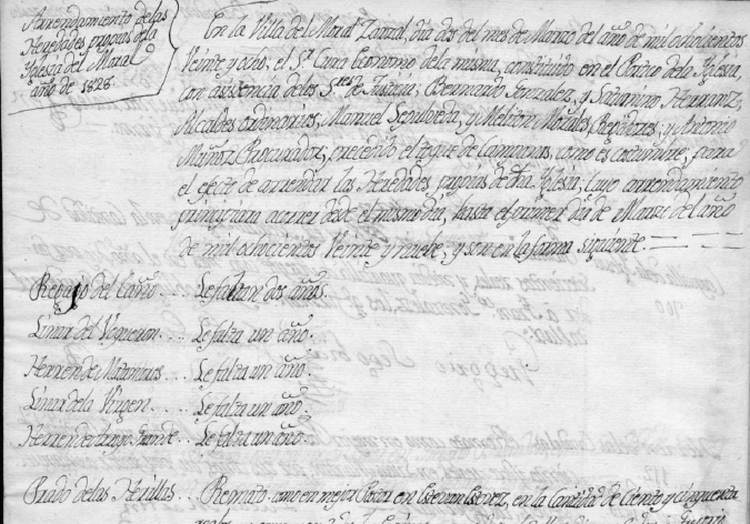 Arrendamiento delas
Heredades propias dela
Yglesia del Moral
año de 1828.
En la Villa del Moral Zarzal, dia dos del mes de Marzo del año de mil ochocientos
Veinte y ocho, el Sr. Cura Economo dela misma, constituido en el Portico dela Yglesia,
con asistencia delos Sres. de Justicia; Bernardo Gonzalez, y Saturnino Herranz,
Alcaldes ordinarios, Manuel Sepulveda, y Meliton Morales, Regidores; y Antonio
Muñoz Procurador; precedido el toque de Campanas, como es costumbre; para
el efecto de arrendar las Heredades propias de dha Yglesia; cuyo arrendamiento
principiara acorrer desde el mismo dia, hasta el primer dia de Marzo del año
de mil ochocientos Veinte y nueve, y son en la forma siguiente.
del Caño.... Le faltan dos años.
Linar del .... Le falta un año.
Herren de .... Le falta un año.
Linar dela Virgen.... Le falta un año.
Herren del grande... Le falta un año.
Prado delas Herillas... Remató como en mejor Postor en Estevan Estevez, en la Cantidad de Ciento y cinquenta